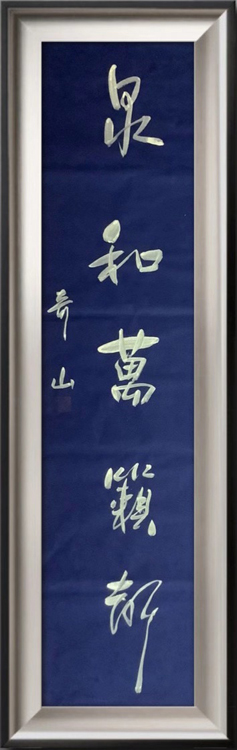 泉和萬籟
奇山